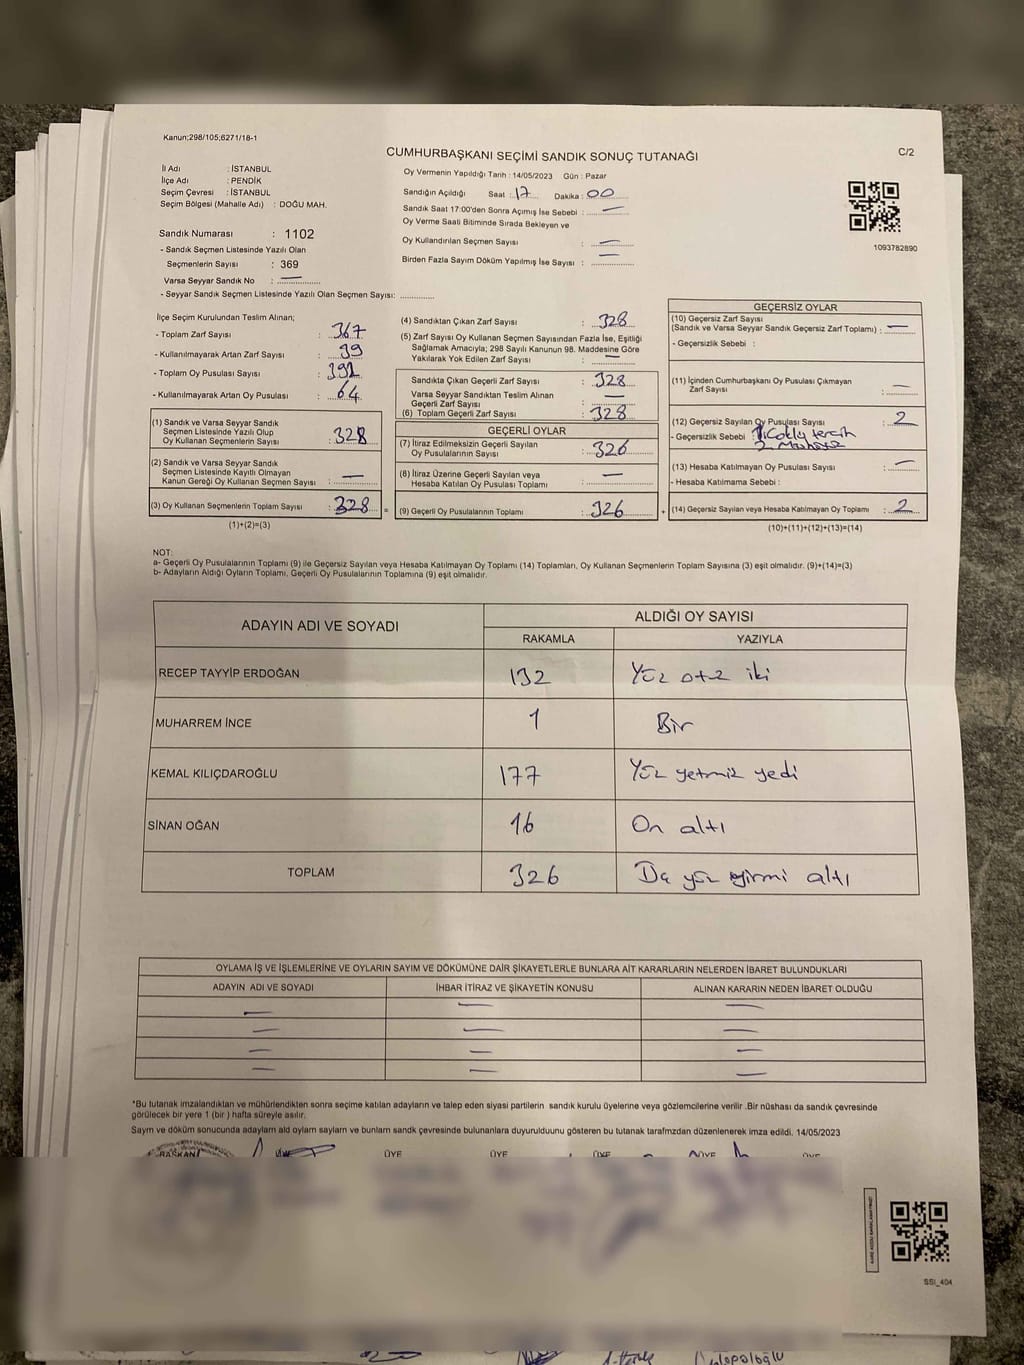 Kanun;298/105;6271/18-1
CUMHURBAŞKANI SEÇİMİ SANDIK SONUÇ TUTANAĞI
C/2
İl Adı : İSTANBUL
İlçe Adı : PENDİK
Seçim Çevresi : İSTANBUL
Seçim Bölgesi (Mahalle Adı) : DOĞU MAH.
Sandık Numarası : 1102
- Sandık Seçmen Listesinde Yazılı Olan
Seçmenlerin Sayısı : 369
Varsa Seyyar Sandık No : —
- Seyyar Sandık Seçmen Listesinde Yazılı Olan Seçmen Sayısı: ............
Oy Vermenin Yapıldığı Tarih : 14/05/2023 Gün : Pazar
Sandığın Açıldığı Saat : 17 Dakika : 00
Sandık Saat 17:00'den Sonra Açımış İse Sebebi : —
Oy Verme Saati Bitiminde Sırada Bekleyen ve
Oy Kullandırılan Seçmen Sayısı : —
Birden Fazla Sayım Döküm Yapılmış İse Sayısı : —
1093782890
İlçe Seçim Kurulundan Teslim Alınan;
- Toplam Zarf Sayısı : 367
- Kullanılmayarak Artan Zarf Sayısı : 39
- Toplam Oy Pusulası Sayısı : 392
- Kullanılmayarak Artan Oy Pusulası : 64
(1) Sandık ve Varsa Seyyar Sandık
Seçmen Listesinde Yazılı Olup
Oy Kullanan Seçmenlerin Sayısı : 328
(2) Sandık ve Varsa Seyyar Sandık
Seçmen Listesinde Kayıtlı Olmayan
Kanun Gereği Oy Kullanan Seçmen Sayısı : —
(3) Oy Kullanan Seçmenlerin Toplam Sayısı : 328 =
(1)+(2)=(3)
(4) Sandıktan Çıkan Zarf Sayısı : 328
(5) Zarf Sayısı Oy Kullanan Seçmen Sayısından Fazla İse, Eşitliği
Sağlamak Amacıyla; 298 Sayılı Kanunun 98. Maddesine Göre
Yakılarak Yok Edilen Zarf Sayısı : —
Sandıkta Çıkan Geçerli Zarf Sayısı : 328
Varsa Seyyar Sandıktan Teslim Alınan
Geçerli Zarf Sayısı : —
(6) Toplam Geçerli Zarf Sayısı : 328
GEÇERLİ OYLAR
(7) İtiraz Edilmeksizin Geçerli Sayılan
Oy Pusulalarının Sayısı : 326
(8) İtiraz Üzerine Geçerli Sayılan veya
Hesaba Katılan Oy Pusulası Toplamı : —
(9) Geçerli Oy Pusulalarının Toplamı : 326 +
GEÇERSİZ OYLAR
(10) Geçersiz Zarf Sayısı
(Sandık ve Varsa Seyyar Sandık Geçersiz Zarf Toplamı) : —
- Geçersizlik Sebebi :
(11) İçinden Cumhurbaşkanı Oy Pusulası Çıkmayan
Zarf Sayısı : —
(12) Geçersiz Sayılan Oy Pusulası Sayısı : 2
- Geçersizlik Sebebi : tercih
(13) Hesaba Katılmayan Oy Pusulası Sayısı : —
- Hesaba Katılmama Sebebi :
(14) Geçersiz Sayılan veya Hesaba Katılmayan Oy Toplamı : 2
(10)+(11)+(12)+(13)=(14)
NOT:
a- Geçerli Oy Pusulalarının Toplamı (9) ile Geçersiz Sayılan veya Hesaba Katılmayan Oy Toplamı (14) Toplamları, Oy Kullanan Seçmenlerin Toplam Sayısına (3) eşit olmalıdır. (9)+(14)=(3)
b- Adayların Aldığı Oyların Toplamı, Geçerli Oy Pusulalarının Toplamına (9) eşit olmalıdır.
ADAYIN ADI VE SOYADI
ALDIĞI OY SAYISI
RAKAMLA YAZIYLA
RECEP TAYYİP ERDOĞAN 132 Yüz otuz iki
MUHARREM İNCE 1 Bir
KEMAL KILIÇDAROĞLU 177 Yüz yetmiz yedi
SİNAN OĞAN 16 On altı
TOPLAM 326 yüz yirmi altı
OYLAMA İŞ VE İŞLEMLERİNE VE OYLARIN SAYIM VE DÖKÜMÜNE DAİR ŞİKAYETLERLE BUNLARA AİT KARARLARIN NELERDEN İBARET BULUNDUKLARI
ADAYIN ADI VE SOYADI İHBAR İTİRAZ VE ŞİKAYETİN KONUSU ALINAN KARARIN NEDEN İBARET OLDUĞU
— — —
— — —
— — —
— — —
*Bu tutanak imzalandıktan ve mühürlendikten sonra seçime katılan adayların ve talep eden siyasi partilerin sandık kurulu üyelerine veya gözlemcilerine verilir .Bir nüshası da sandık çevresinde
görülecek bir yere 1 (bir ) hafta süreyle asılır.
Sayım ve döküm sonucunda adaylam ald oylam saylam ve bunlam sandk çevresinde bulunanlara duyurulduunu gösteren bu tutanak tarafmzdan düzenlenerek imza edildi. 14/05/2023
BAŞKAN ÜYE ÜYE ÜYE ÜYE ÜYE
SSI_404